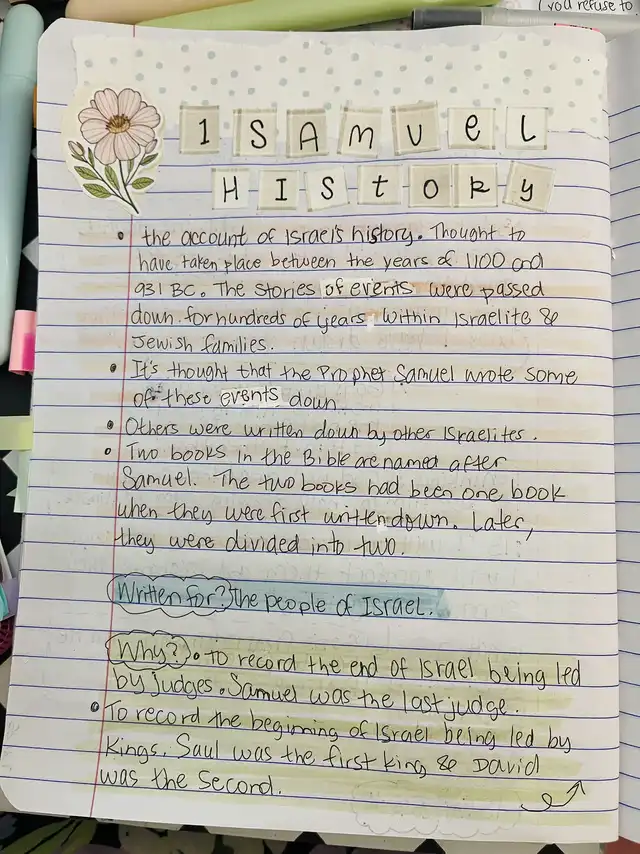 (you refuse to
1 SAMUEL
HIStORy
• the account of Israel's history. Thought to
have taken place between the years of 1100 and
931 BC. The stories of events were passed
down for hundreds of years within Israelite &
Jewish families.
• It's thought that the Prophet Samuel wrote some
of these events down
• Others were written down by other Israelites.
• Two books in the Bible are named after
Samuel. The two books had been one book
when they were first written down. Later,
they were divided into two.
Written for? The people of Israel.
Why? • To record the end of Israel being led
by judges. Samuel was the last judge.
• To record the beginning of Israel being led by
Kings. Saul was the first king & David
was the second.